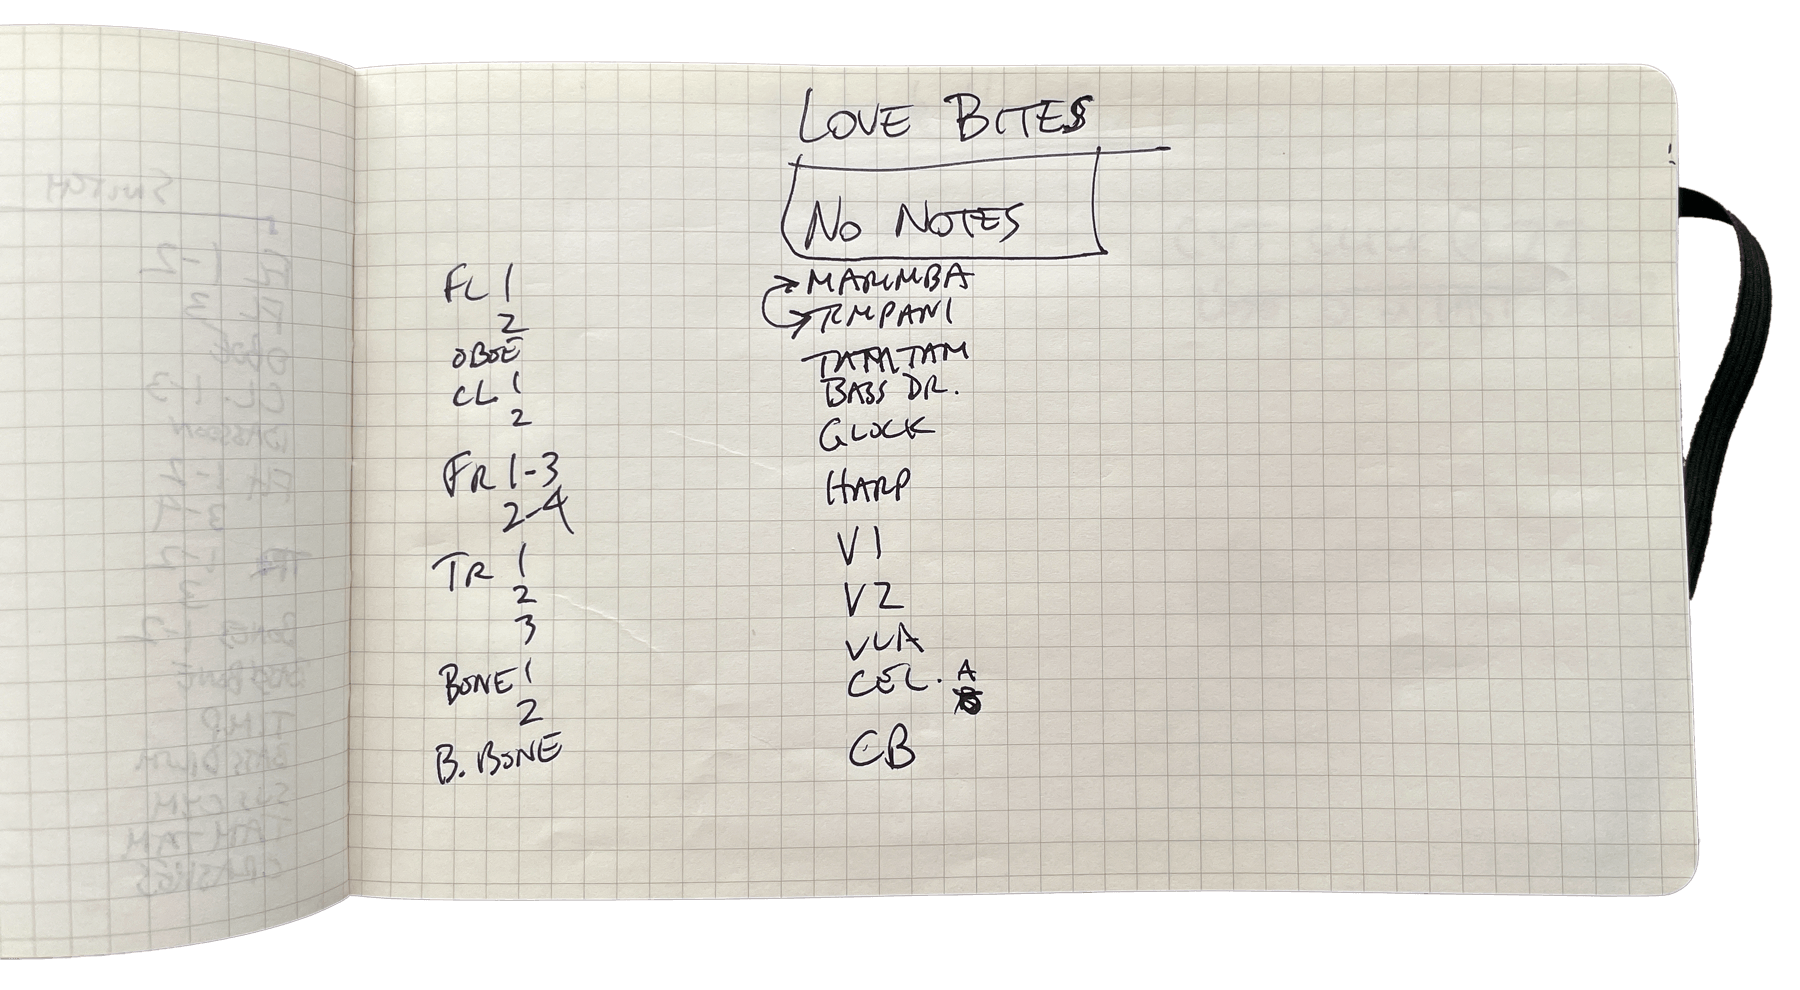 LOVE BITES
NO NOTES
FL 1
2
OBOE
CL 1
2
FR 1-3
2-4
TR 1
2
3
BONE 1
2
B. BONE
MARIMBA
TIMPANI
TAM TAM
BASS DR.
GLOCK
HARP
V1
V2
VLA
CEL. A
CB